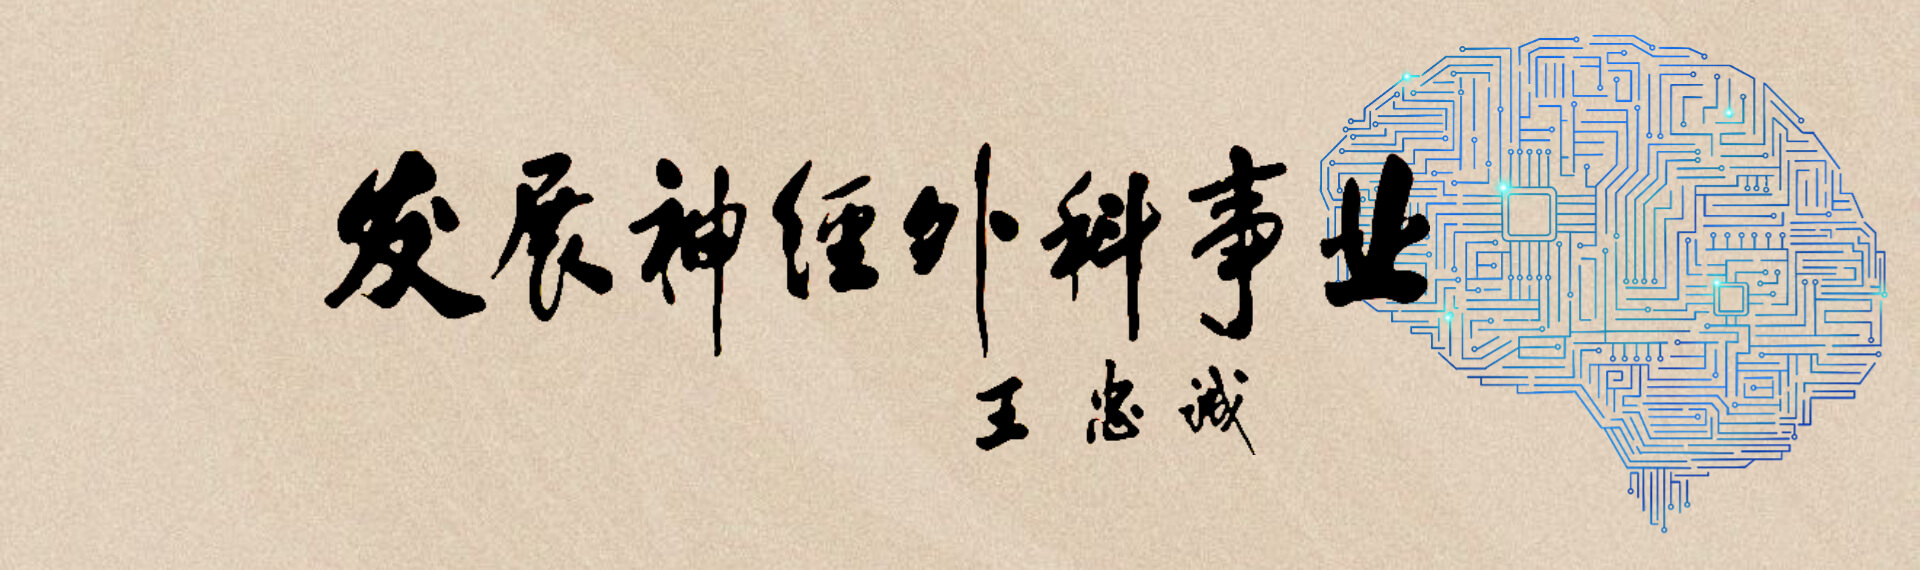 发展神经外科事业
王忠诚